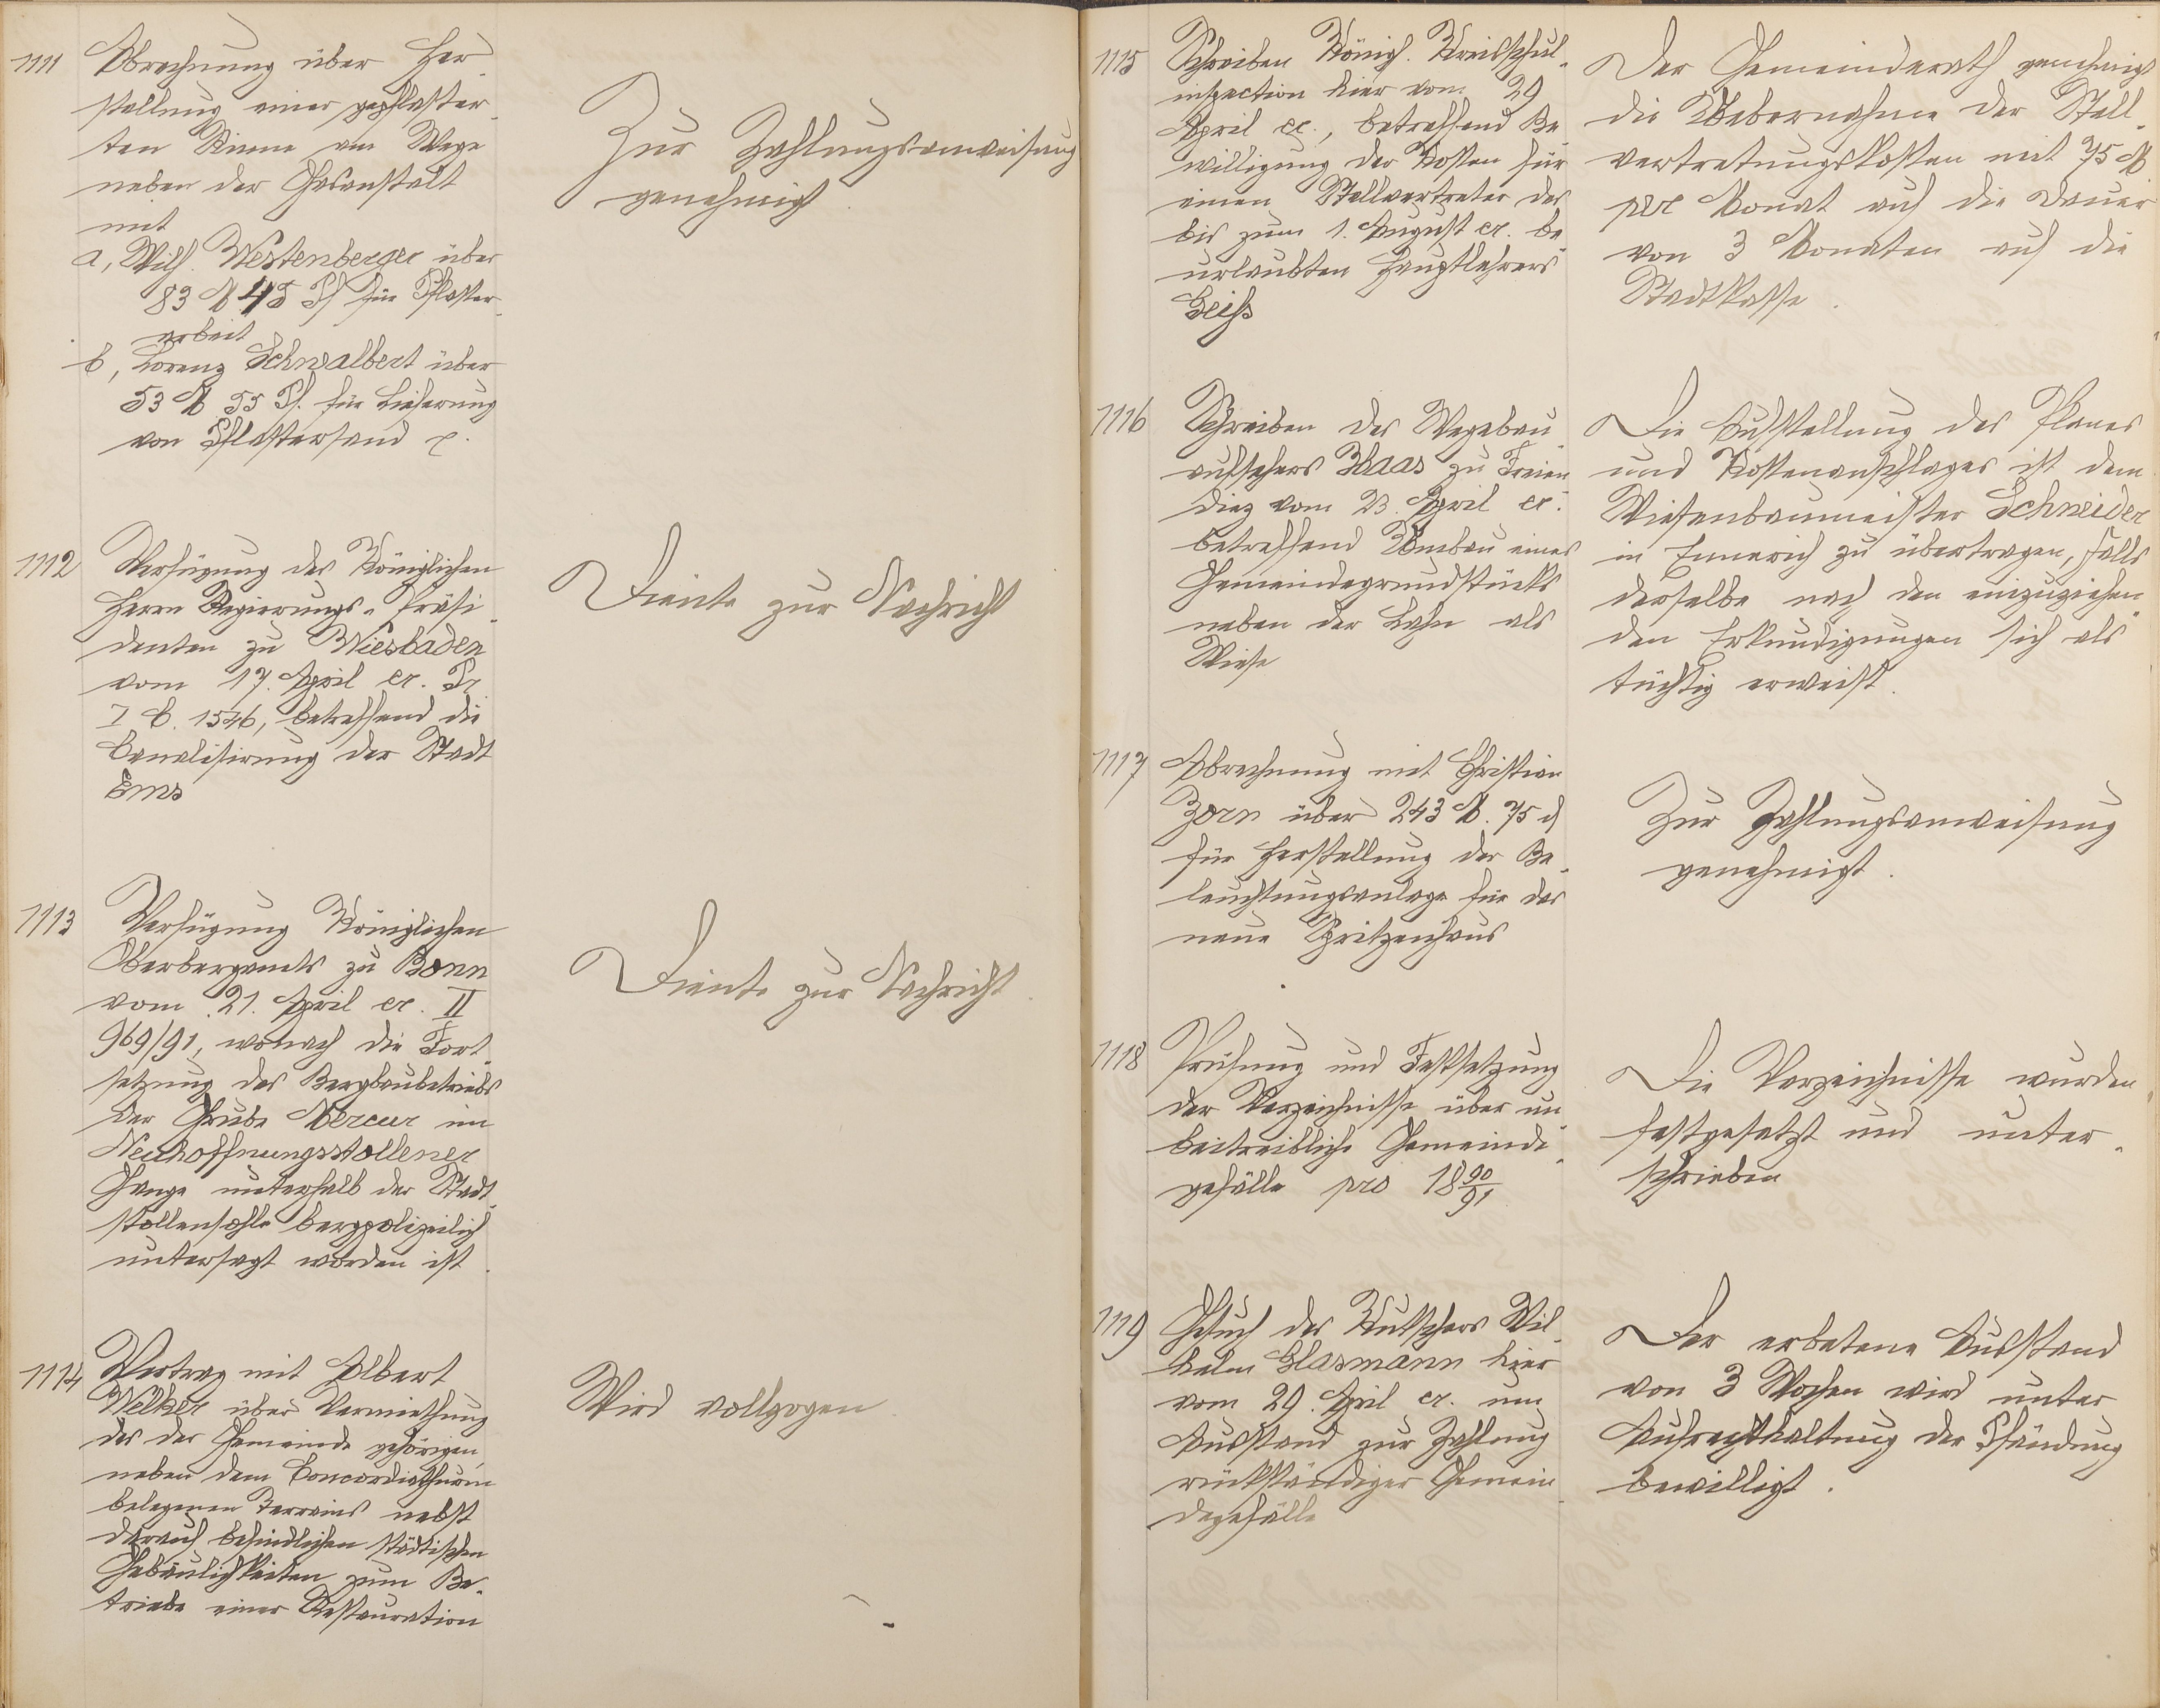 1111
Abrechnung über Her-
stellung einer gepflaster-
ten Rinne am Wege
neben der Gasanstalt
mit
a, Wilh. Westenberger über
83 M 45 Pf für Pflaster-
arbeit
b, Lorenz Schwalbert über
53 M 55 Pf. für Lieferung
von Pflastersand p.
Zur Zahlungsanweisung
genehmigt.
1112
Verfügung des Königlichen
Herrn Regierungs-Präsi-
denten zu Wiesbaden
vom 17. April cr. Pr
I C. 1546, betreffend die
Canalisirung der Stadt
Ems
Diente zur Nachricht
1113
Verfügung Königlichen
Oberbergamts zu Bonn
vom 21. April cr. II
969/91, wonach die Fort-
setzung des Bergbaubetriebs
der Grube Mercur im
Neuhoffnungsstollener
Gange unterhalb der Stadt-
stollensohle bergpolizeilich
untersagt worden ist.
Diente zur Nachricht.
1114
Vertrag mit Albert
Welker über Vermiethung
des der Gemeinde gehörigen,
neben dem Concordiathurm
belegenen Terrains nebst
darauf befindlichen städtischen
Gebäulichkeiten zum Be-
triebe einer Restauration
Wird vollzogen.
1115
Schreiben Königl. Kreisschul-
inspection hier vom 29
April cr., betreffend Be-
willigung der Kosten für
einen Stellvertreter des
bis zum 1. August cr. be-
urlaubten Hauptlehrers
Geiss
Der Gemeinderath genehmigt
die Uebernahme der Stell-
vertretungskosten mit 75 M
per Monat auf die Dauer
von 3 Monaten auf die
Stadtkasse.
1116
Schreiben des Wegebau-
aufsehers Haas zu Freien-
diez vom 23. April cr.
betreffend Umbau eines
Gemeindegrundstücks
neben der Lahn als
Wiese
Die Aufstellung des Planes
und Kostenanschlages ist dem
Wiesenbaumeister Schneider
in Ennerich zu übertragen, falls
derselbe nach den einzuziehen-
den Erkundigungen sich als
tüchtig erweist.
1117
Abrechnung mit Christian
Zorn über 243 M. 75 ₰
für Herstellung der Be-
leuchtungsanlage für das
neue Spritzenhaus
Zur Zahlungsanweisung
genehmigt.
1118
Prüfung und Festsetzung
der Verzeichnisse über un-
beitreibliche Gemeinde-
gefälle pro 1890/91
Die Verzeichnisse wurden
festgesetzt und unter-
schrieben
1119
Gesuch des Kutschers Wil-
helm Glasmann hier
vom 29. April cr. um
Ausstand zur Zahlung
rückständiger Gemein-
degefälle
Der erbetene Ausstand
von 3 Wochen wird unter
Aufrechthaltung der Pfändung
bewilligt.